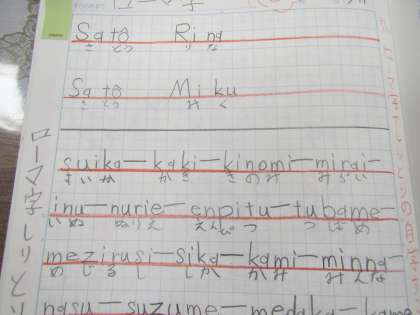 ローマ字
Satô Rina
さ とう り な
Satô Miku
さ とう み く
ローマ字しりとり
suika－kaki－kinomi－mirai－
すいか かき きのみ みらい
inu－nurie－enpitu－tubame－
いぬ ぬりえ えんぴつ つばめ
mezirusi－sika－kami－minna－
めじるし しか かみ みんな
nasu－suzume－medaka－kame